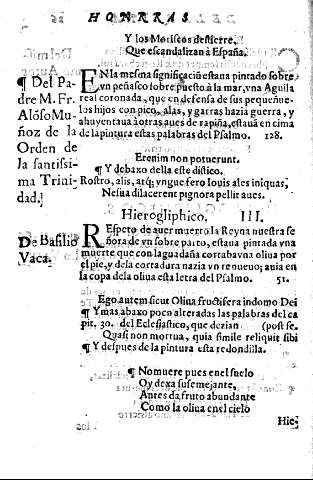 HONRRAS
Y los Moriscos destierre,
Que escandalizan à España.
¶ Del Pa
dre M. Fr.
Alõso Mu
ñoz de la
Orden de
la santissi
ma Trini
dad.
EN la mesma significaciõ estaua pintado sobre
vn peñasco sobre puesto à la mar, vna Aguila
real coronada, que en defensa de sus pequeñue-
los hijos con pico, alas, y garras hazia guerra, y
ahuyentaua à otras aues de rapiña, estauã en cima
de la pintura estas palabras del Psalmo. 128.
Etenim non potuerunt.
¶ Y debaxo della este distico.
Rostro, alis, atq; vngue fero Iouis ales iniquas,
Ne sua dilacerent pignora pellit aues.
Hierogliphico. III.
De Basilio
Vaca.
REspeto de auer muerto la Reyna nuestra se
ñora de vn sobre parto, estaua pintada vna
muerte que con la guadaña cortaba vna oliua por
el pie, y de la cortadura nazia vn renueuo; auia en
la copa de la oliua esta letra del Psalmo. 51.
Ego autem sicut Oliua fructifera in domo Dei
¶ Y mas abaxo poco alteradas las palabras del ca
pit. 30. del Eclesiastico, que dezian (post se.
Quasi non mortua, quia simile reliquit sibi
¶ Y despues de la pintura esta redondilla.
¶ No muere pues en el suelo
Oy dexa su semejante,
Antes da fruto abundante
Como la oliua en el cielo
Hie-